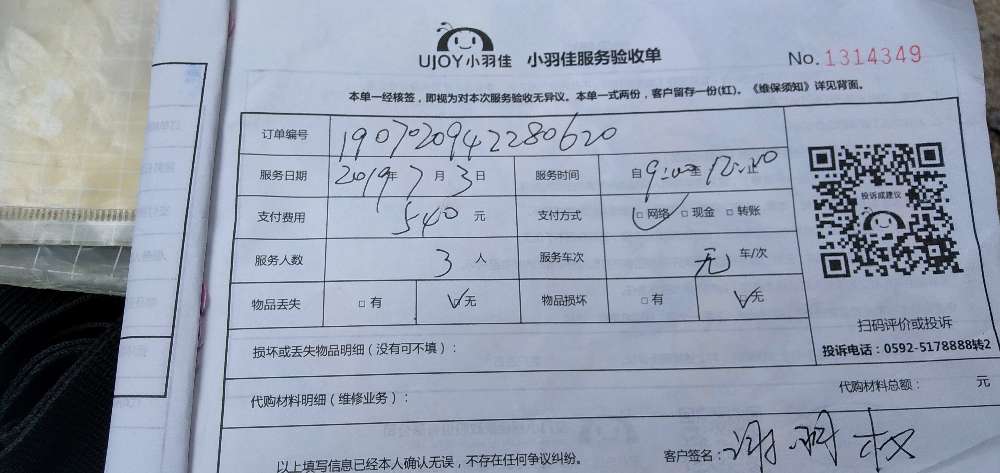 UJOY小羽佳 小羽佳服务验收单 No. 1314349
本单一经核签，即视为对本次服务验收无异议。本单一式两份，客户留存一份(红)。《维保须知》详见背面。
订单编号 1907020942280620
服务日期 2019年7月3日 服务时间 自9:00至12:00止
支付费用 540元 支付方式 □网络 □现金 □转账
投诉或建议
服务人数 3人 服务车次 无 车/次
物品丢失 □有 ☑无 物品损坏 □有 ☑无
扫码评价或投诉
损坏或丢失物品明细（没有可不填）：
投诉电话：0592-5178888转2
代购材料明细（维修业务）： 代购材料总额： 元
以上填写信息已经本人确认无误，不存在任何争议纠纷。 客户签名：